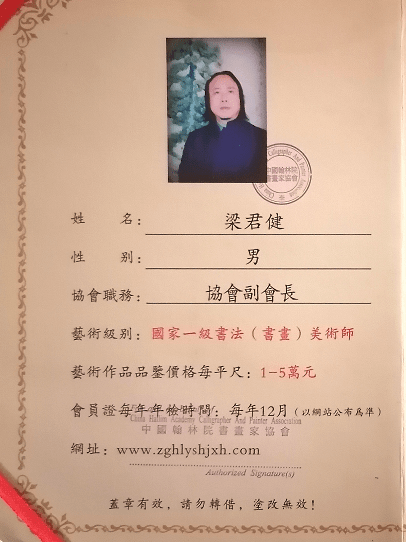 中國翰林院
書畫家協會
姓 名: 梁君健
性 别: 男
協會職務: 協會副會長
藝術級别: 國家一級書法(書畫)美術師
藝術作品品鑒價格每平尺: 1-5萬元
會員證每年年檢時間: 每年12月(以網站公布爲準)
China Hanlin Academy Calligrapher And Painter Association
中國翰林院書畫家協會
網址: www.zghlyshjxh.com
Authorized Signature(s)
蓋章有效, 請勿轉借, 塗改無效!